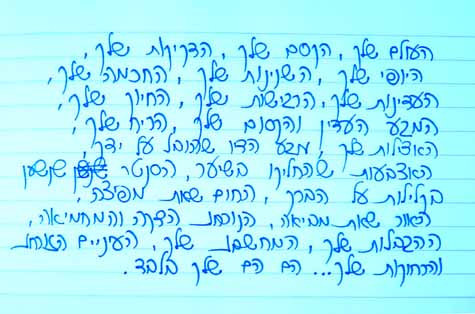 העולם שלך, הקסם שלך, הדקיקות שלך,
היופי שלך, השנינות שלך, החכמה שלך,
העדינות שלך, הרגישות שלך, החיוך שלך,
המבע העדין והקסום שלך, הריח שלך,
האצילות שלך, מגע הדו שהובל על ידך,
האצבעות שהחליקו בשיער, הסנטר שנשען
בקלילות על הברך, החום שאת מפיצה,
האור שאת מביאה, הנוכחות השקטה והמחמיאה,
ההגבלות שלך, המחשבות שלך, העיניים
והרחוקות שלך... הם הם שלך בלבד.